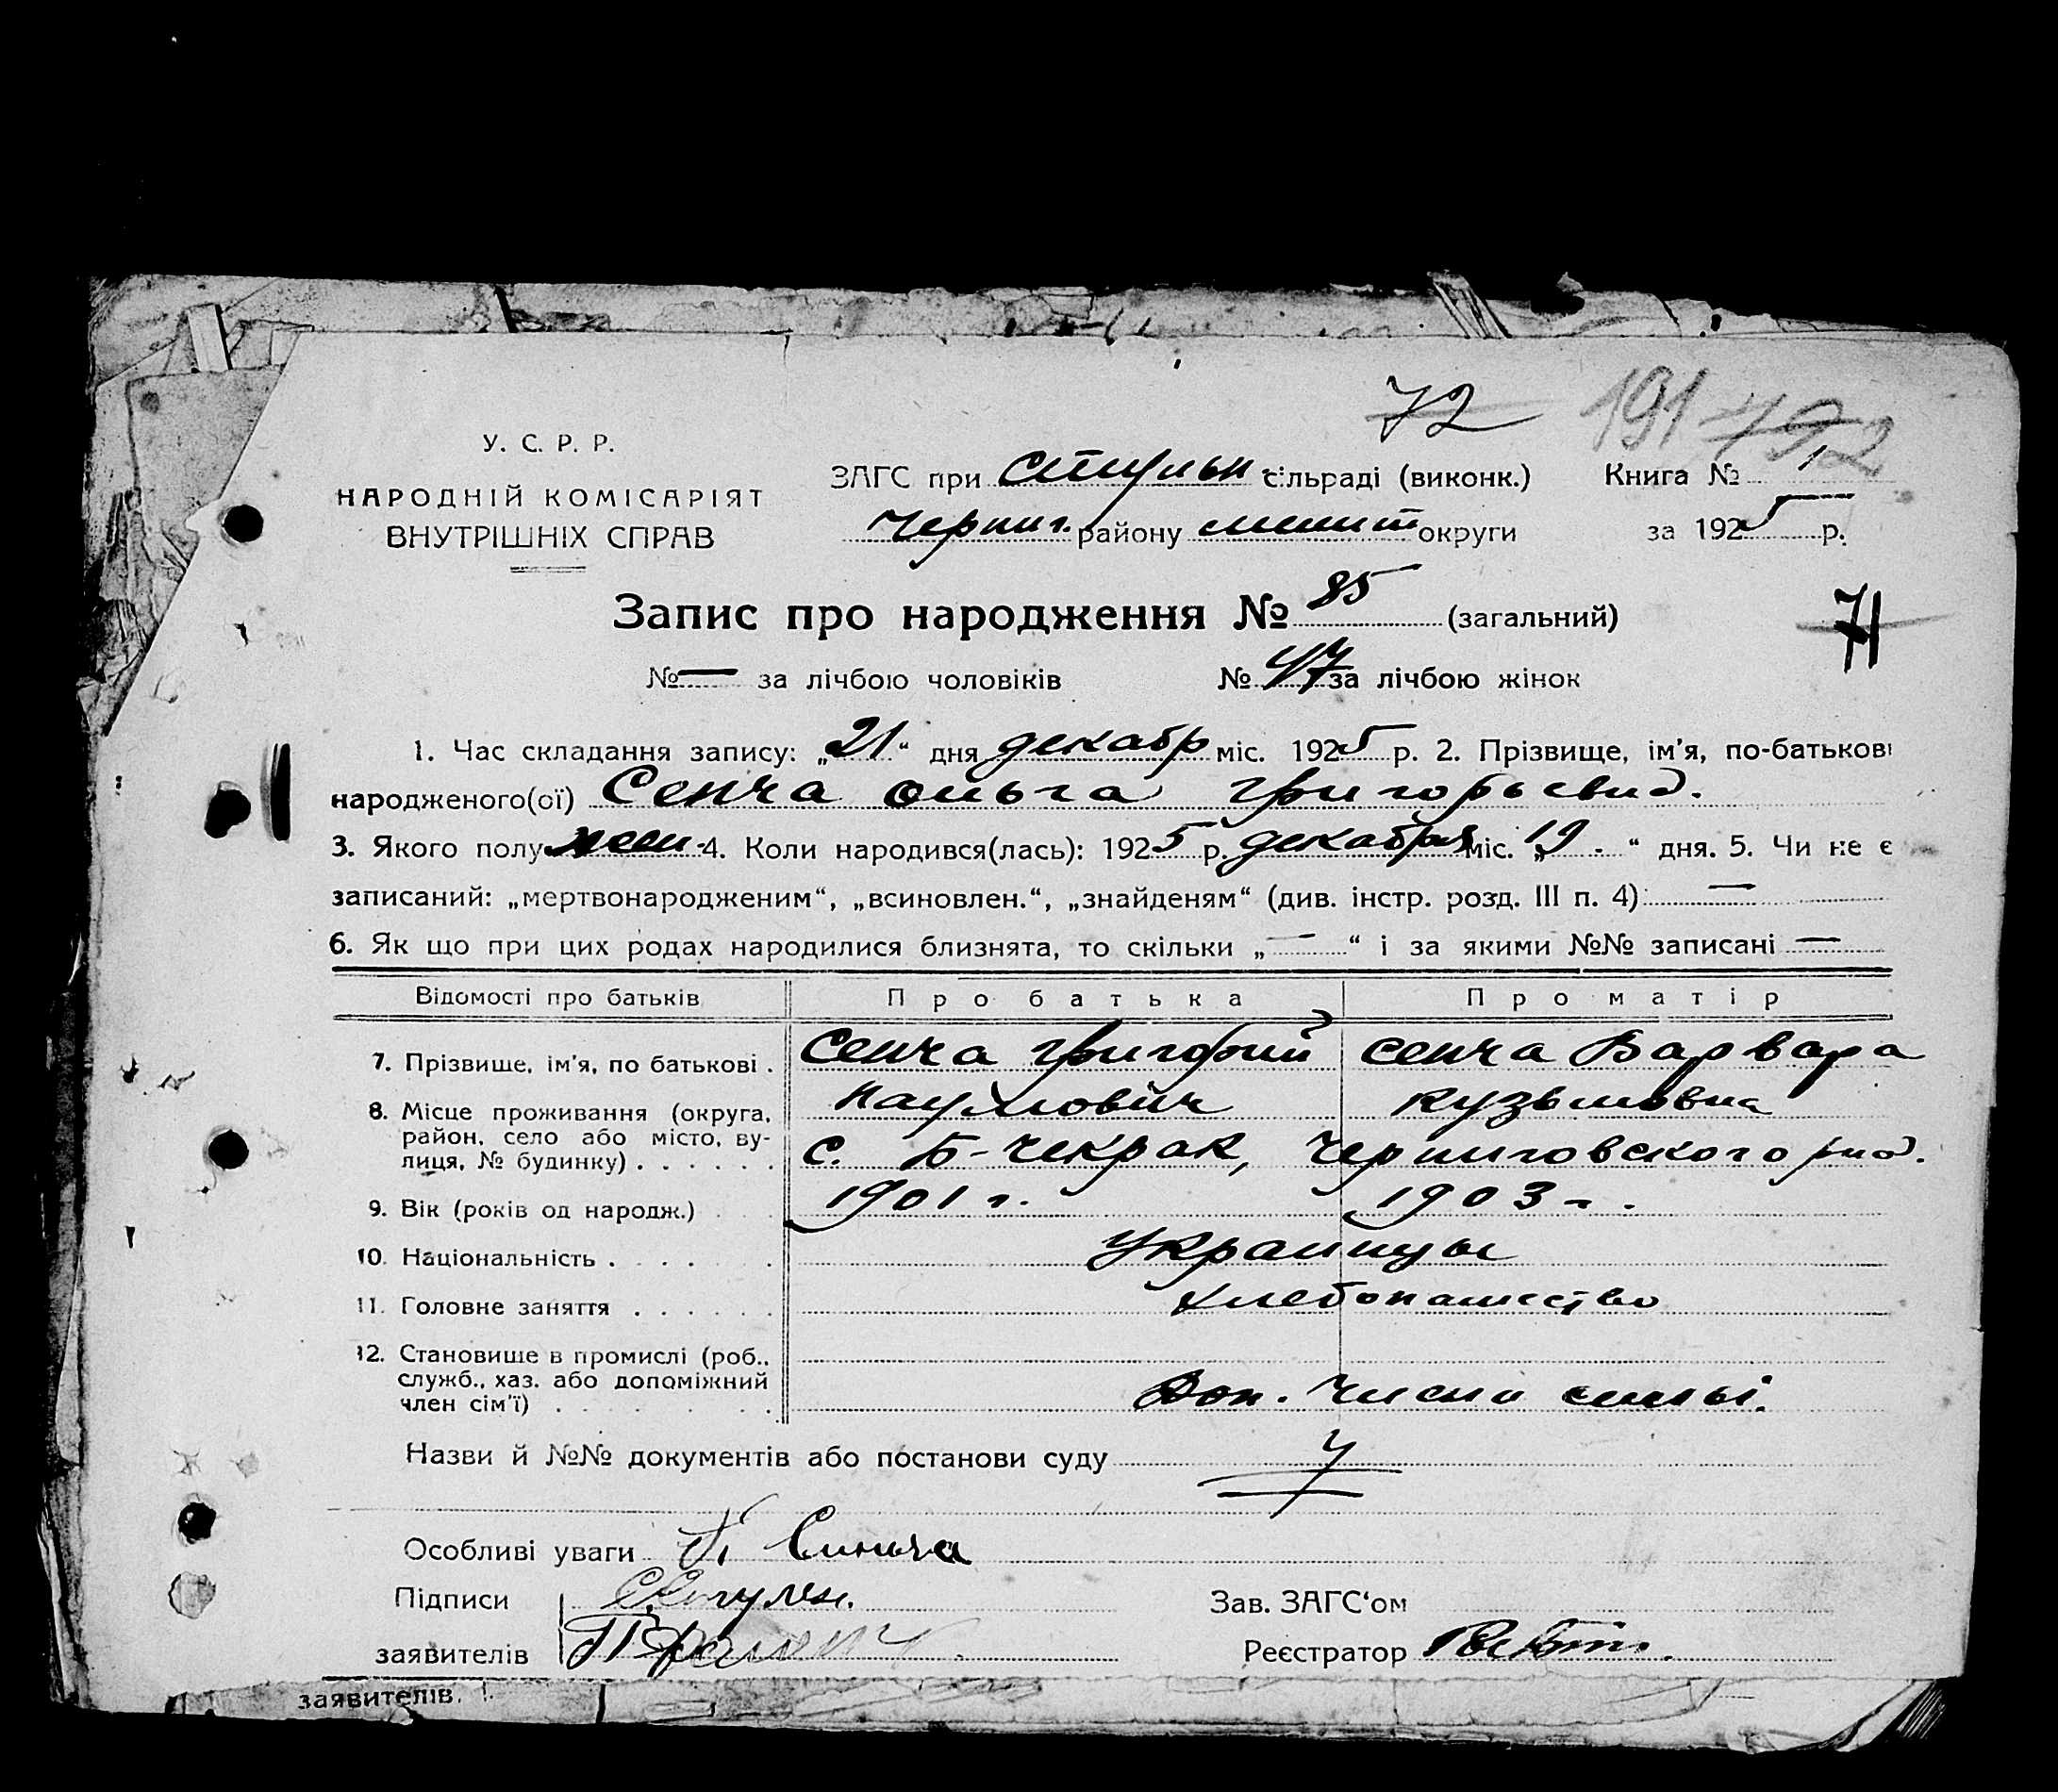 72 191
У. С. Р. Р.
НАРОДНІЙ КОМІСАРІЯТ
ВНУТРІШНІХ СПРАВ
ЗАГС при сільраді (виконк.) Книга № 1
Черниг. району мелит округи за 1925 р.
Запис про народження № 85 (загальний)
71
№ — за лічбою чоловіків № 47 за лічбою жінок
1. Час складання запису: „21“ дня декабр міс. 1925 р. 2. Прізвище, ім'я, по-батькові
народженого(ої) Сенча Ольга Григорьевна.
3. Якого полу жен. 4. Коли народився(лась): 1925 р. декабря міс. „19“ дня. 5. Чи не є
записаний: „мертвонародженим“, „всиновлен.“, „знайденям“ (див. інстр. розд. III п. 4) —
6. Як що при цих родах народилися близнята, то скільки „—“ і за якими №№ записані —
Відомості про батьків Про батька Про матір
7. Прізвище, ім'я, по батькові . Сенча Григорий Сенча Варвара
Наумович Кузьмовна
8. Місце проживання (округа,
район, село або місто, ву-
лиця, № будинку) . . . . . . с. Б-Чекрак, Черниговского
9. Вік (років од народж.) 1901 г. 1903 г.
10. Національність . . . . . Украинцы
11. Головне заняття . . . . . . Хлебопашество
12. Становище в промислі (роб.,
служб., хаз. або допоміжний
член сім'ї) . . . . . . . . Доп. члены семьі.
Назви й №№ документів або постанови суду
Особливі уваги
Підписи Зав. ЗАГС'ом
заявителів Реєстратор
заявителів.